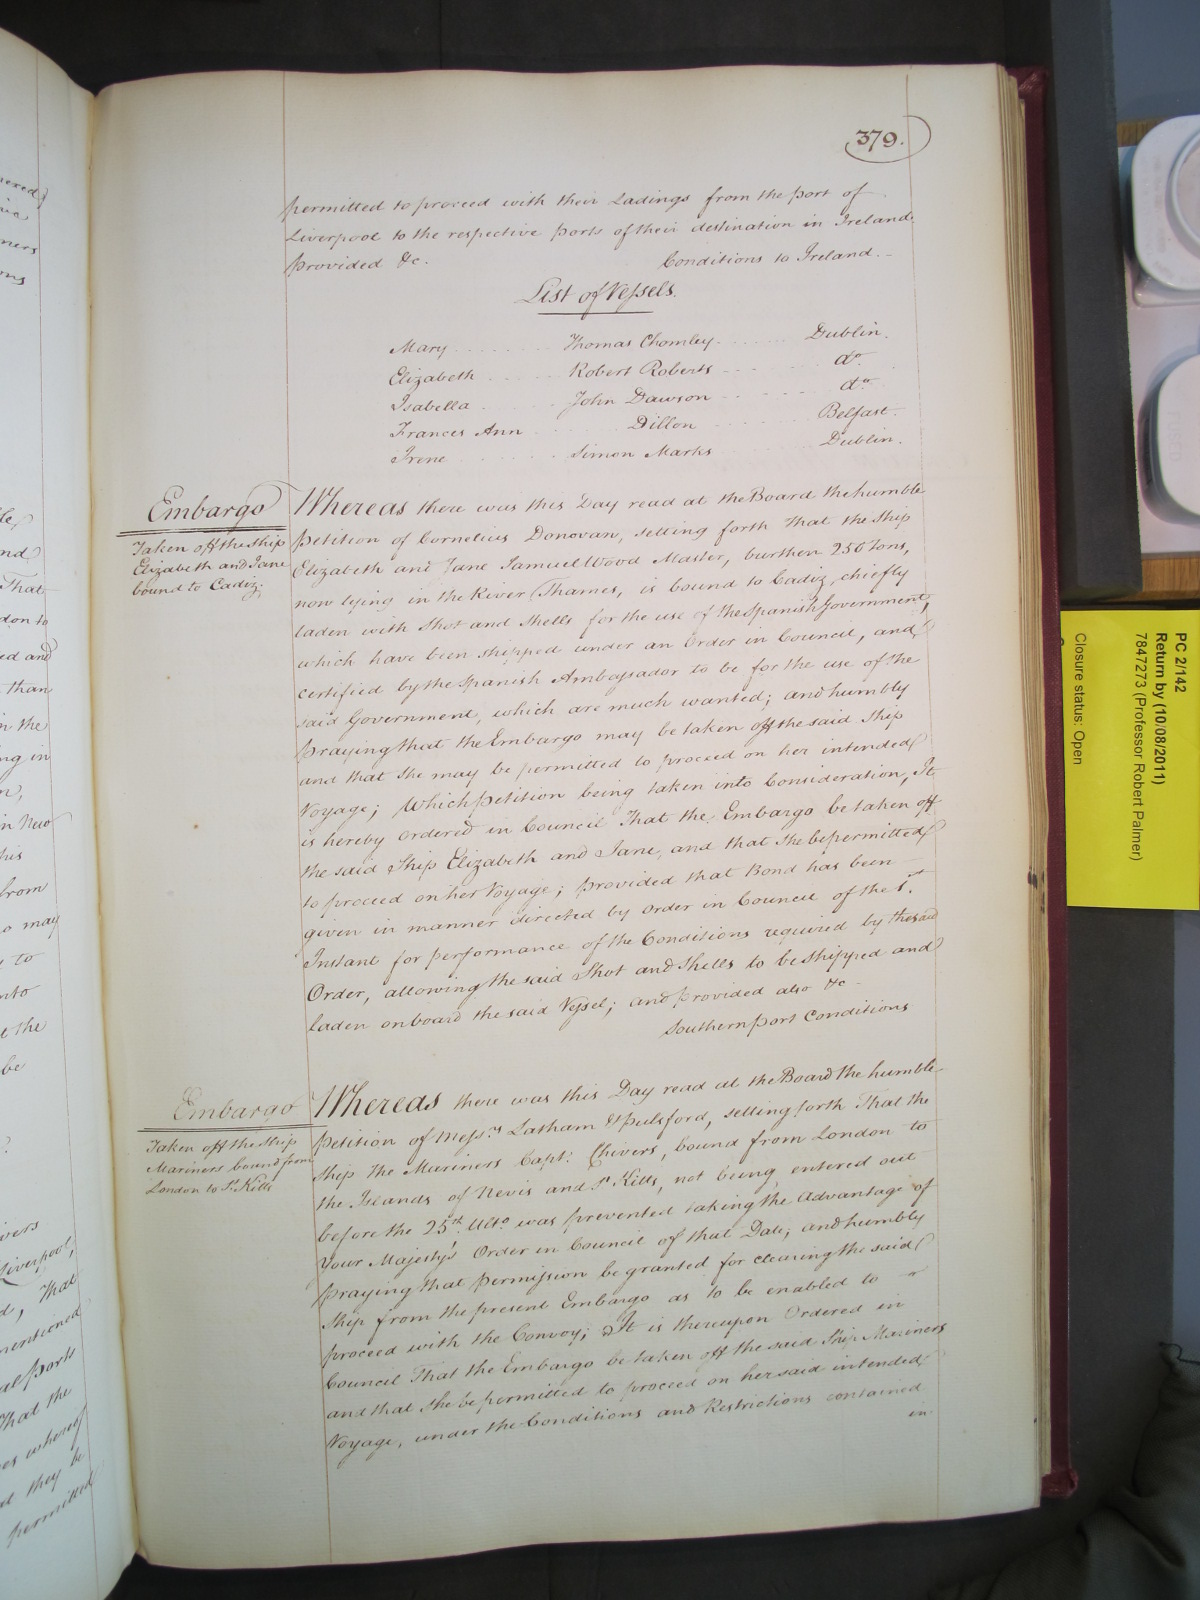 379.
permitted to proceed with their Ladings from the port of
Liverpool to the respective Ports of their destination in Ireland
provided &c.
Conditions to Ireland.
List of Vessels.
Mary Thomas Chomley Dublin.
Elizabeth Robert Roberts do.
Isabella John Dawson do.
Frances Ann Dillon Belfast.
Irene Simon Marks Dublin.
Embargo
Taken off the ship
Elizabeth and Jane
bound to Cadiz.
Whereas there was this Day read at the Board the humble
Petition of Cornelius Donovan, setting forth That the Ship
Elizabeth and Jane Samuel Wood Master, burthen 250 Tons,
now lying in the River Thames, is bound to Cadiz, chiefly
laden with Shot and Shells for the use of the Spanish Government,
which have been shipped under an Order in Council, and
certified by the Spanish Ambassador to be for the use of the
said Government, which are much wanted; and humbly
praying that the Embargo may be taken off the said Ship
and that she may be permitted to proceed on her intended
Voyage; Which Petition being taken into Consideration, It
is hereby ordered in Council That the Embargo be taken off
the said Ship Elizabeth and Jane, and that She be permitted
to proceed on her Voyage; provided that Bond has been
given in manner directed by Order in Council of the 1st.
Instant for performance of the Conditions required by the said
Order, allowing the said Shot and Shells to be shipped and
laden on board the said Vessel; and provided also &c
Southern port Conditions
Embargo
Taken off the Ship
Mariners bound from
London to St. Kitts
Whereas there was this Day read at the Board the humble
Petition of Messrs Latham & Pulsford, setting forth That the
Ship the Mariners Capt. Chivers, bound from London to
the Islands of Nevis and St. Kitts, not being entered out
before the 25th. Ulto was prevented taking the Advantage of
Your Majesty's Order in Council of that Date; and humbly
praying that permission be granted for clearing the said
Ship from the present Embargo as to be enabled to
proceed with the Convoy; It is thereupon Ordered in
Council That the Embargo be taken off the said Ship Mariners
and that She be permitted to proceed on her said intended
Voyage, under the Conditions and Restrictions contained
in
PC 2/142
Return by (10/08/2011)
7847273 (Professor Robert Palmer)
Closure status: Open